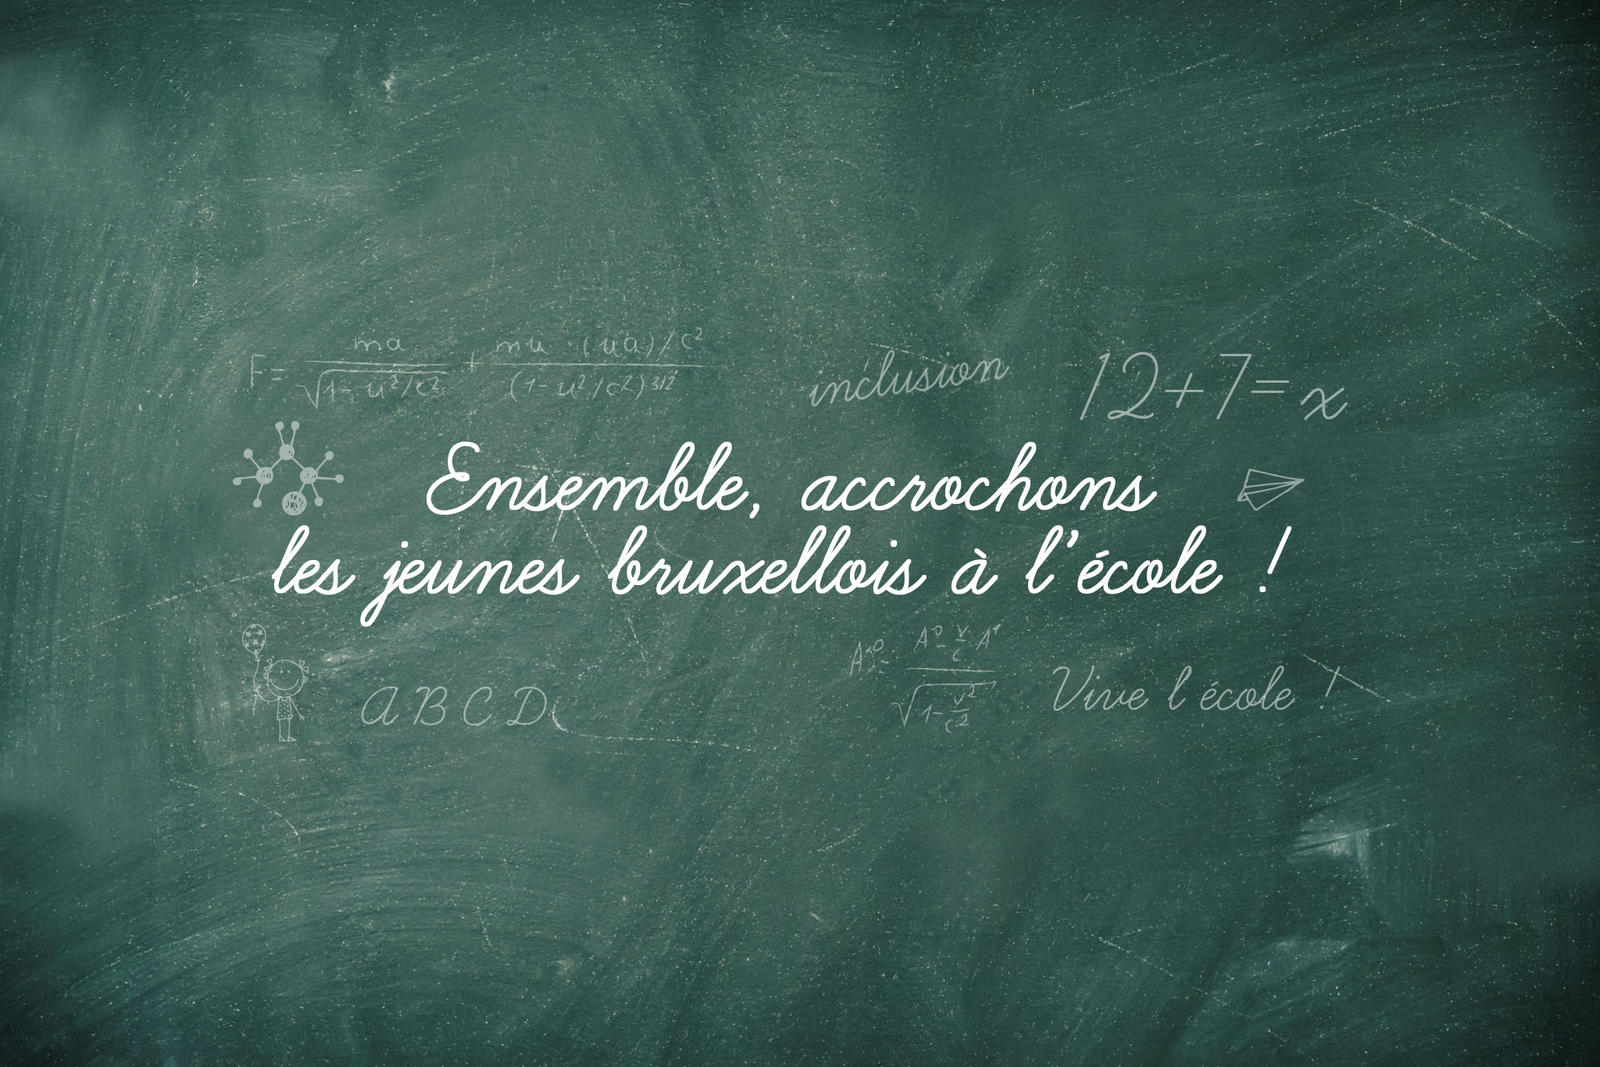 F = ma / √1-u²/c² + mu · (ua)/c² / (1-u²/c²) 3/2
inclusion
12+7= x
Ensemble, accrochons
les jeunes bruxellois à l'école !
A B C D
Vive l'école !